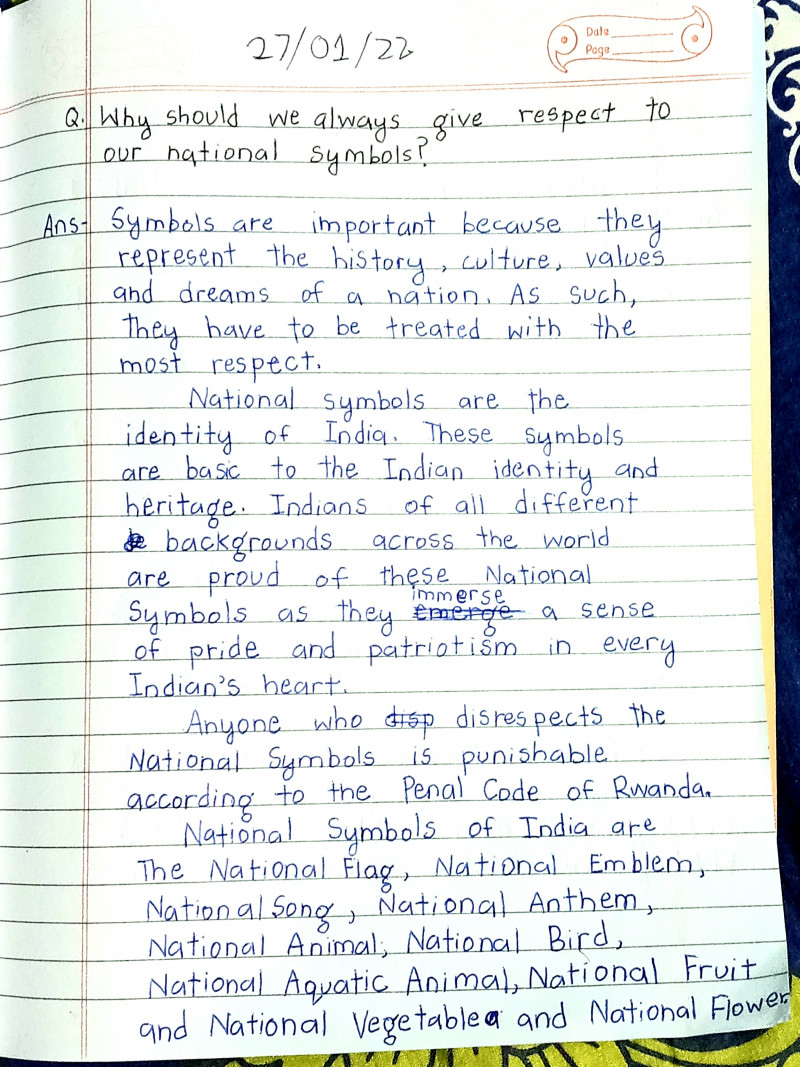 27/01/22
Date
Page
Q. Why should we always give respect to
our national symbols?
Ans- Symbols are important because they
represent the history, culture, values
and dreams of a nation. As such,
they have to be treated with the
most respect.
National symbols are the
identity of India. These symbols
are basic to the Indian identity and
heritage. Indians of all different
backgrounds across the world
are proud of these National
immerse
Symbols as they emerge a sense
of pride and patriotism in every
Indian's heart.
Anyone who disp disrespects the
National Symbols is punishable
according to the Penal Code of Rwanda.
National Symbols of India are
The National Flag, National Emblem,
National Song, National Anthem,
National Animal, National Bird,
National Aquatic Animal, National Fruit
and National Vegetable and National Flower